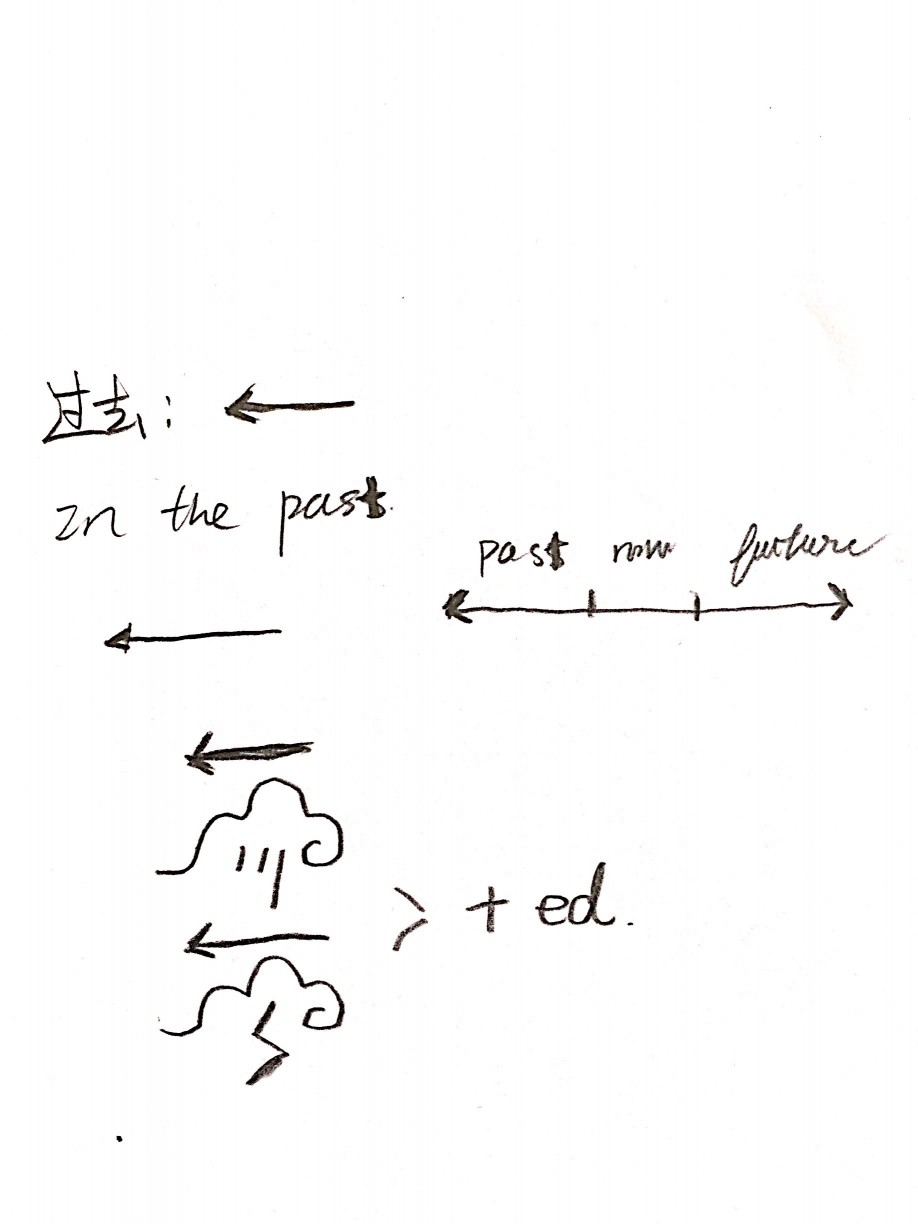 过去:
In the past.
past now future
+ ed.